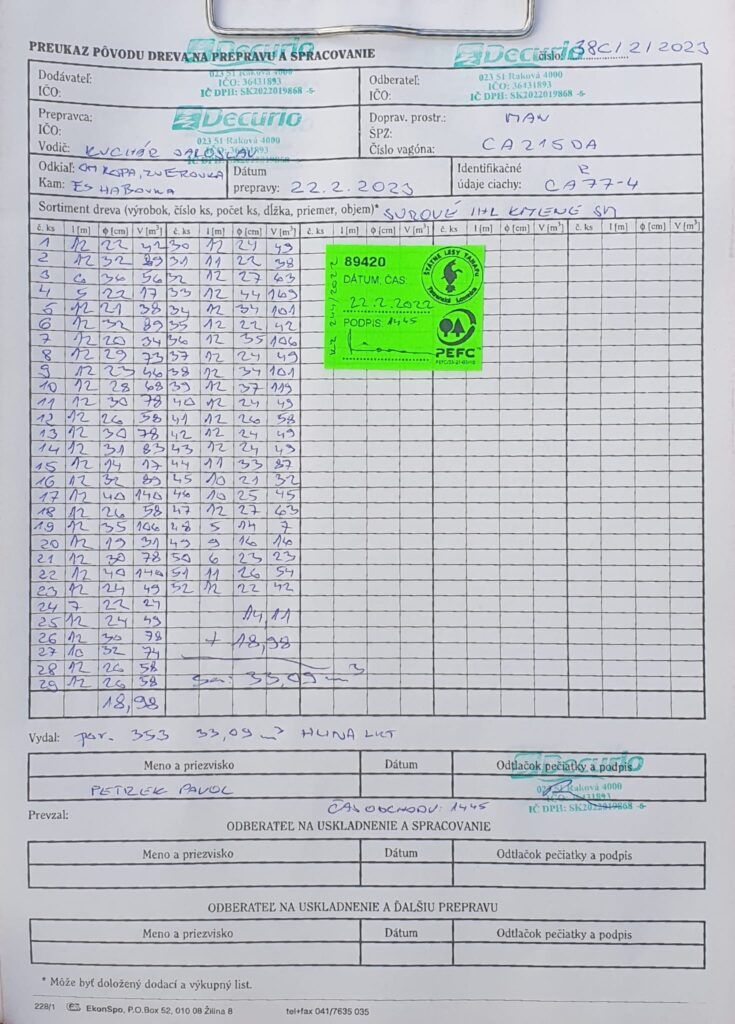 PREUKAZ PÔVODU DREVA NA PREPRAVU A SPRACOVANIE
číslo: 38C/2/2023
Decurio
023 51 Raková 4000
IČO: 36431893
IČ DPH: SK2022019868 -5-
Decurio
023 51 Raková 4000
IČO: 36431893
IČ DPH: SK2022019868 -5-
Dodávateľ:
IČO:
Odberateľ:
IČO:
Prepravca:
Decurio
023 51 Raková 4000
IČ DPH: SK2022019868 -5-
Vodič: KUCHÁR JAROSLAV
Doprav. prostr.: MAN
ŠPZ:
Číslo vagóna: CA215DA
Odkiaľ: OM KOPA, ZVEROVKA
Kam: ES HABOVKA
Dátum
prepravy: 22.2.2023
Identifikačné
údaje ciachy: CA77-4
Sortiment dreva (výrobok, číslo ks, počet ks, dĺžka, priemer, objem)* SUROVÉ IHL KMENE SM
č. ks l [m] ϕ [cm] V [m³] č. ks l [m] ϕ [cm] V [m³] č. ks l [m] ϕ [cm] V [m³] č. ks l [m] ϕ [cm] V [m³]
1 12 22 42 30 12 24 49
2 12 32 89 31 11 22 38
3 6 36 56 32 12 27 63
4 5 22 17 33 12 44 169
5 12 21 38 34 12 34 101
6 12 32 89 35 12 22 42
7 12 20 34 36 12 35 106
8 12 29 73 37 12 24 49
9 12 23 46 38 12 34 101
10 12 28 68 39 12 37 119
11 12 30 78 40 12 24 49
12 12 26 58 41 12 26 58
13 12 30 78 42 12 24 49
14 12 31 83 43 12 24 49
15 12 14 17 44 11 33 87
16 12 32 89 45 10 21 32
17 12 40 140 46 10 25 45
18 12 26 58 47 12 27 63
19 12 35 106 48 5 14 7
20 12 19 31 49 9 16 16
21 12 30 78 50 6 23 23
22 12 40 140 51 11 26 54
23 12 24 49 52 12 22 42
24 7 22 24
25 12 24 49 14,11
26 12 30 78 + 18,98
27 10 32 74
28 12 26 58
29 12 26 58 33,09 m³
18,98
89420
DÁTUM, ČAS:
22.2.2022
PODPIS: 1445
ŠTÁTNE LESY TANAPU
Tatranská Lomnica
PEFC
Vydal: por. 353 33,09 m³ HLINA LKT
Meno a priezvisko Dátum Odtlačok pečiatky a podpis
PETREK PAVOL
Decurio
023 51 Raková 4000
IČO: 36431893
IČ DPH: SK2022019868 -5-
Prevzal:
ČAS ODCHODU: 1445
ODBERATEĽ NA USKLADNENIE A SPRACOVANIE
Meno a priezvisko Dátum Odtlačok pečiatky a podpis
ODBERATEĽ NA USKLADNENIE A ĎALŠIU PREPRAVU
Meno a priezvisko Dátum Odtlačok pečiatky a podpis
* Môže byť doložený dodací a výkupný list.
228/1 EkonSpo, P.O.Box 52, 010 08 Žilina 8 tel+fax 041/7635 035